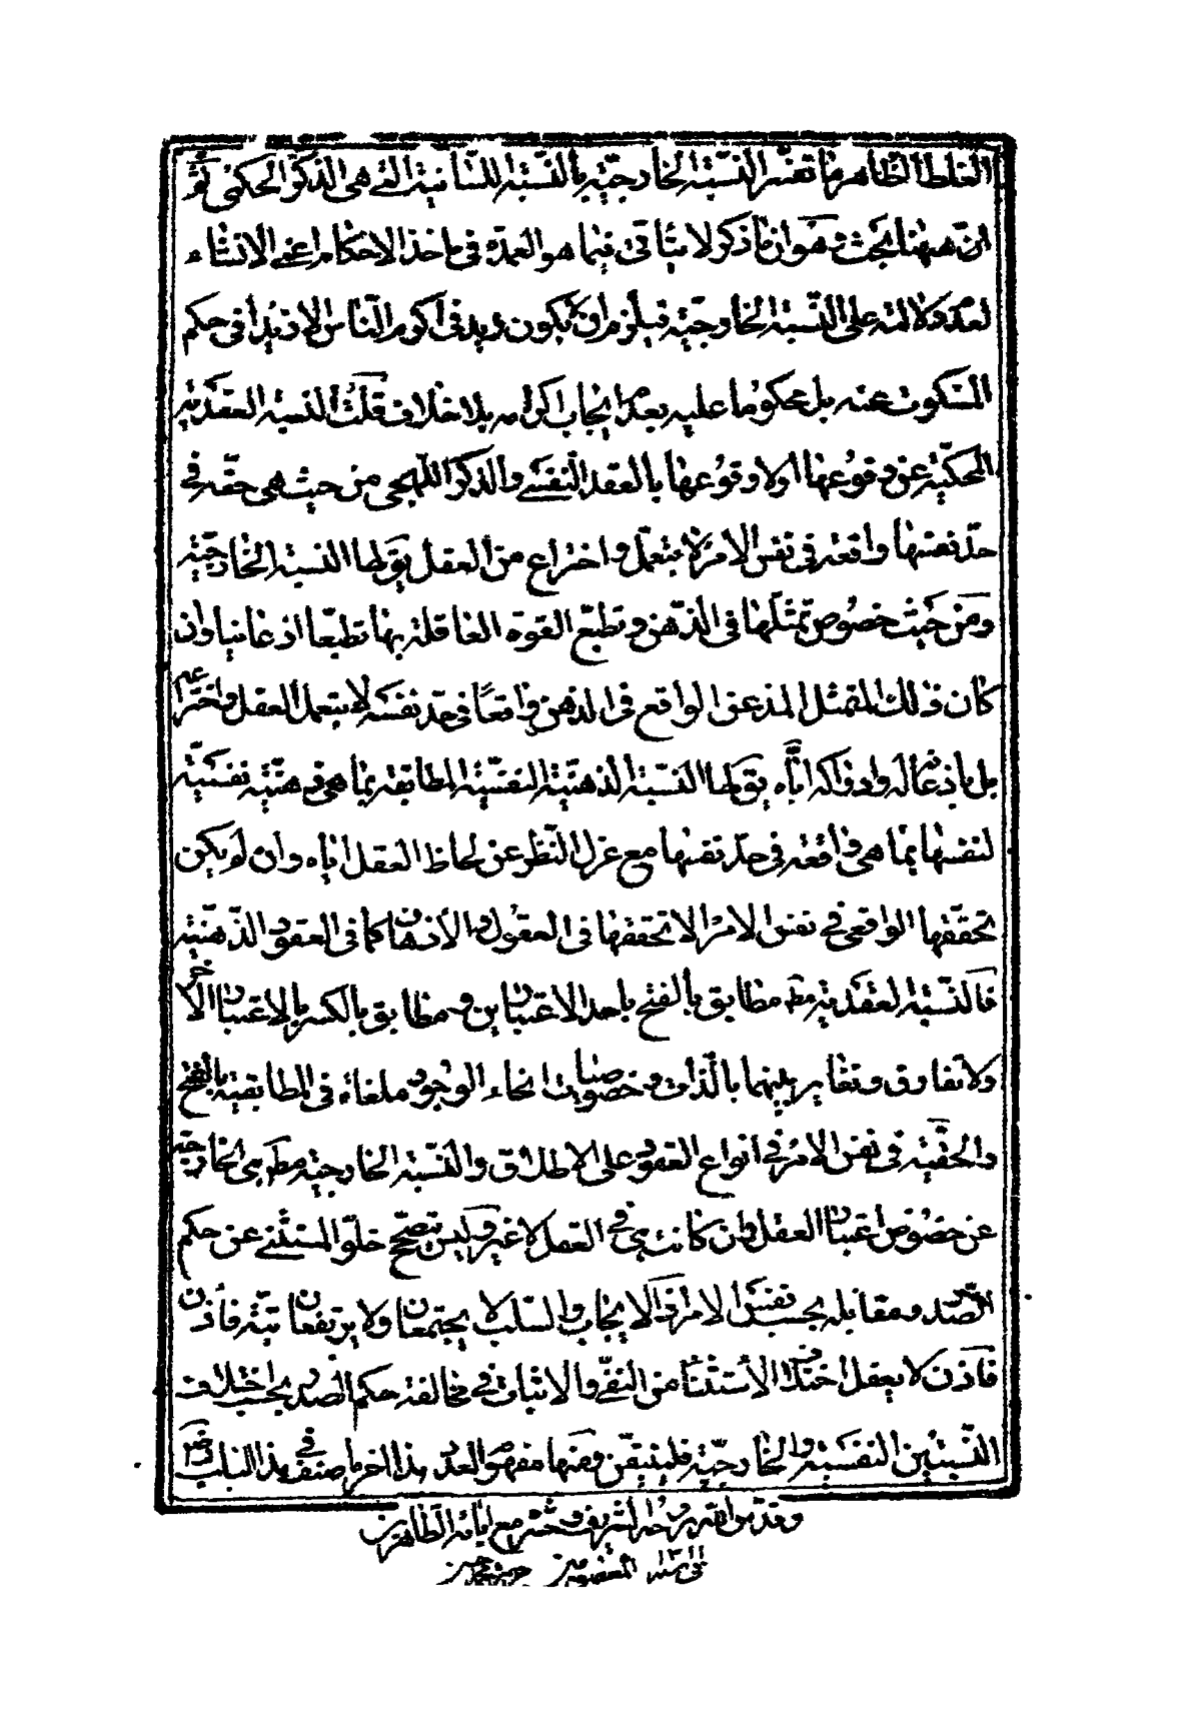 الغلط الظاهر ما تفسر النسبة الخارجية بالنسبة اللسانية التي هي الذكر الحكمى ثم
ان ههنا بحث وهو ان ما ذكر لا يتاتى فيما هو العمدة فى ماخذ الاحكام اعنى الانشاء
لعدم دلالته على النسبة الخارجية فيلزم ان يكون زيد فى اكرم الناس الا زيدا فى حكم
المسكوت عنه بل محكوما عليه بعدم ايجاب اكرامه بلا خلاف قلت النسبة العقدية
الحكمية عن وقوعها اولا وقوعها بالعقد النفسى والذكر اللهجى من حيث هى حقه فى
حد نفسها واقعة فى نفس الامر لا بتعمل واختراع من العقل يق لها النسبة الخارجية
ومن حيث خصوص تمثلها فى الذهن وتطبع القوة العاقلة بها تطبعا اذعانيا وان
كان ذلك التمثل المذعن الواقع فى الذهن واقعا فى حد نفسه لا بتعمل العقل واختراعه
بل باذعانه وادراكه اياه يق لها النسبة الذهنية النفسية المطابقة بما هى ذهنية نفسية
لنفسها بما هى واقعة فى حد نفسها مع عزل النظر عن لحاظ العقل اياه وان لم يكن
تحققها الواقعى فى نفس الامر الا تحققها فى العقول والاذهان كما فى العقود الذهنية
فالنسبة العقدية مطه مطابق بالفتح باحد الاعتبارين ومطابق بالكسر بالاعتبار الاخر
ولا تفارق وتغاير بينهما بالذات وخصوصيات انحاء الوجود ملغاة فى المطابقية بالفتح
والحقية فى نفس الامر فى انواع العقود على الاطلاق والنسبة الخارجية مطه هى الخارجة
عن خصوص اعتبار العقل وان كانت هى فى العقل لا غير وليس يتصحح خلو المستثنى عن حكم
الصدر ومقابله بحسب نفس الامر اذ الايجاب والسلب لا يجتمعان ولا يرتفعان بتة فاذن
فاذن لا يعقل اختلاف الاستثناء من النفى والاثبات فى مخالفة حكم الصدر بحسب اختلاف
النسبتين النفسية والخارجية فليتيقن ومنها مفهوم العدد هذا اخر ما صنف فى هذا الباب
وقدس الله روحه الشريف وحشره مع ابائه الطاهرين
المعصومين